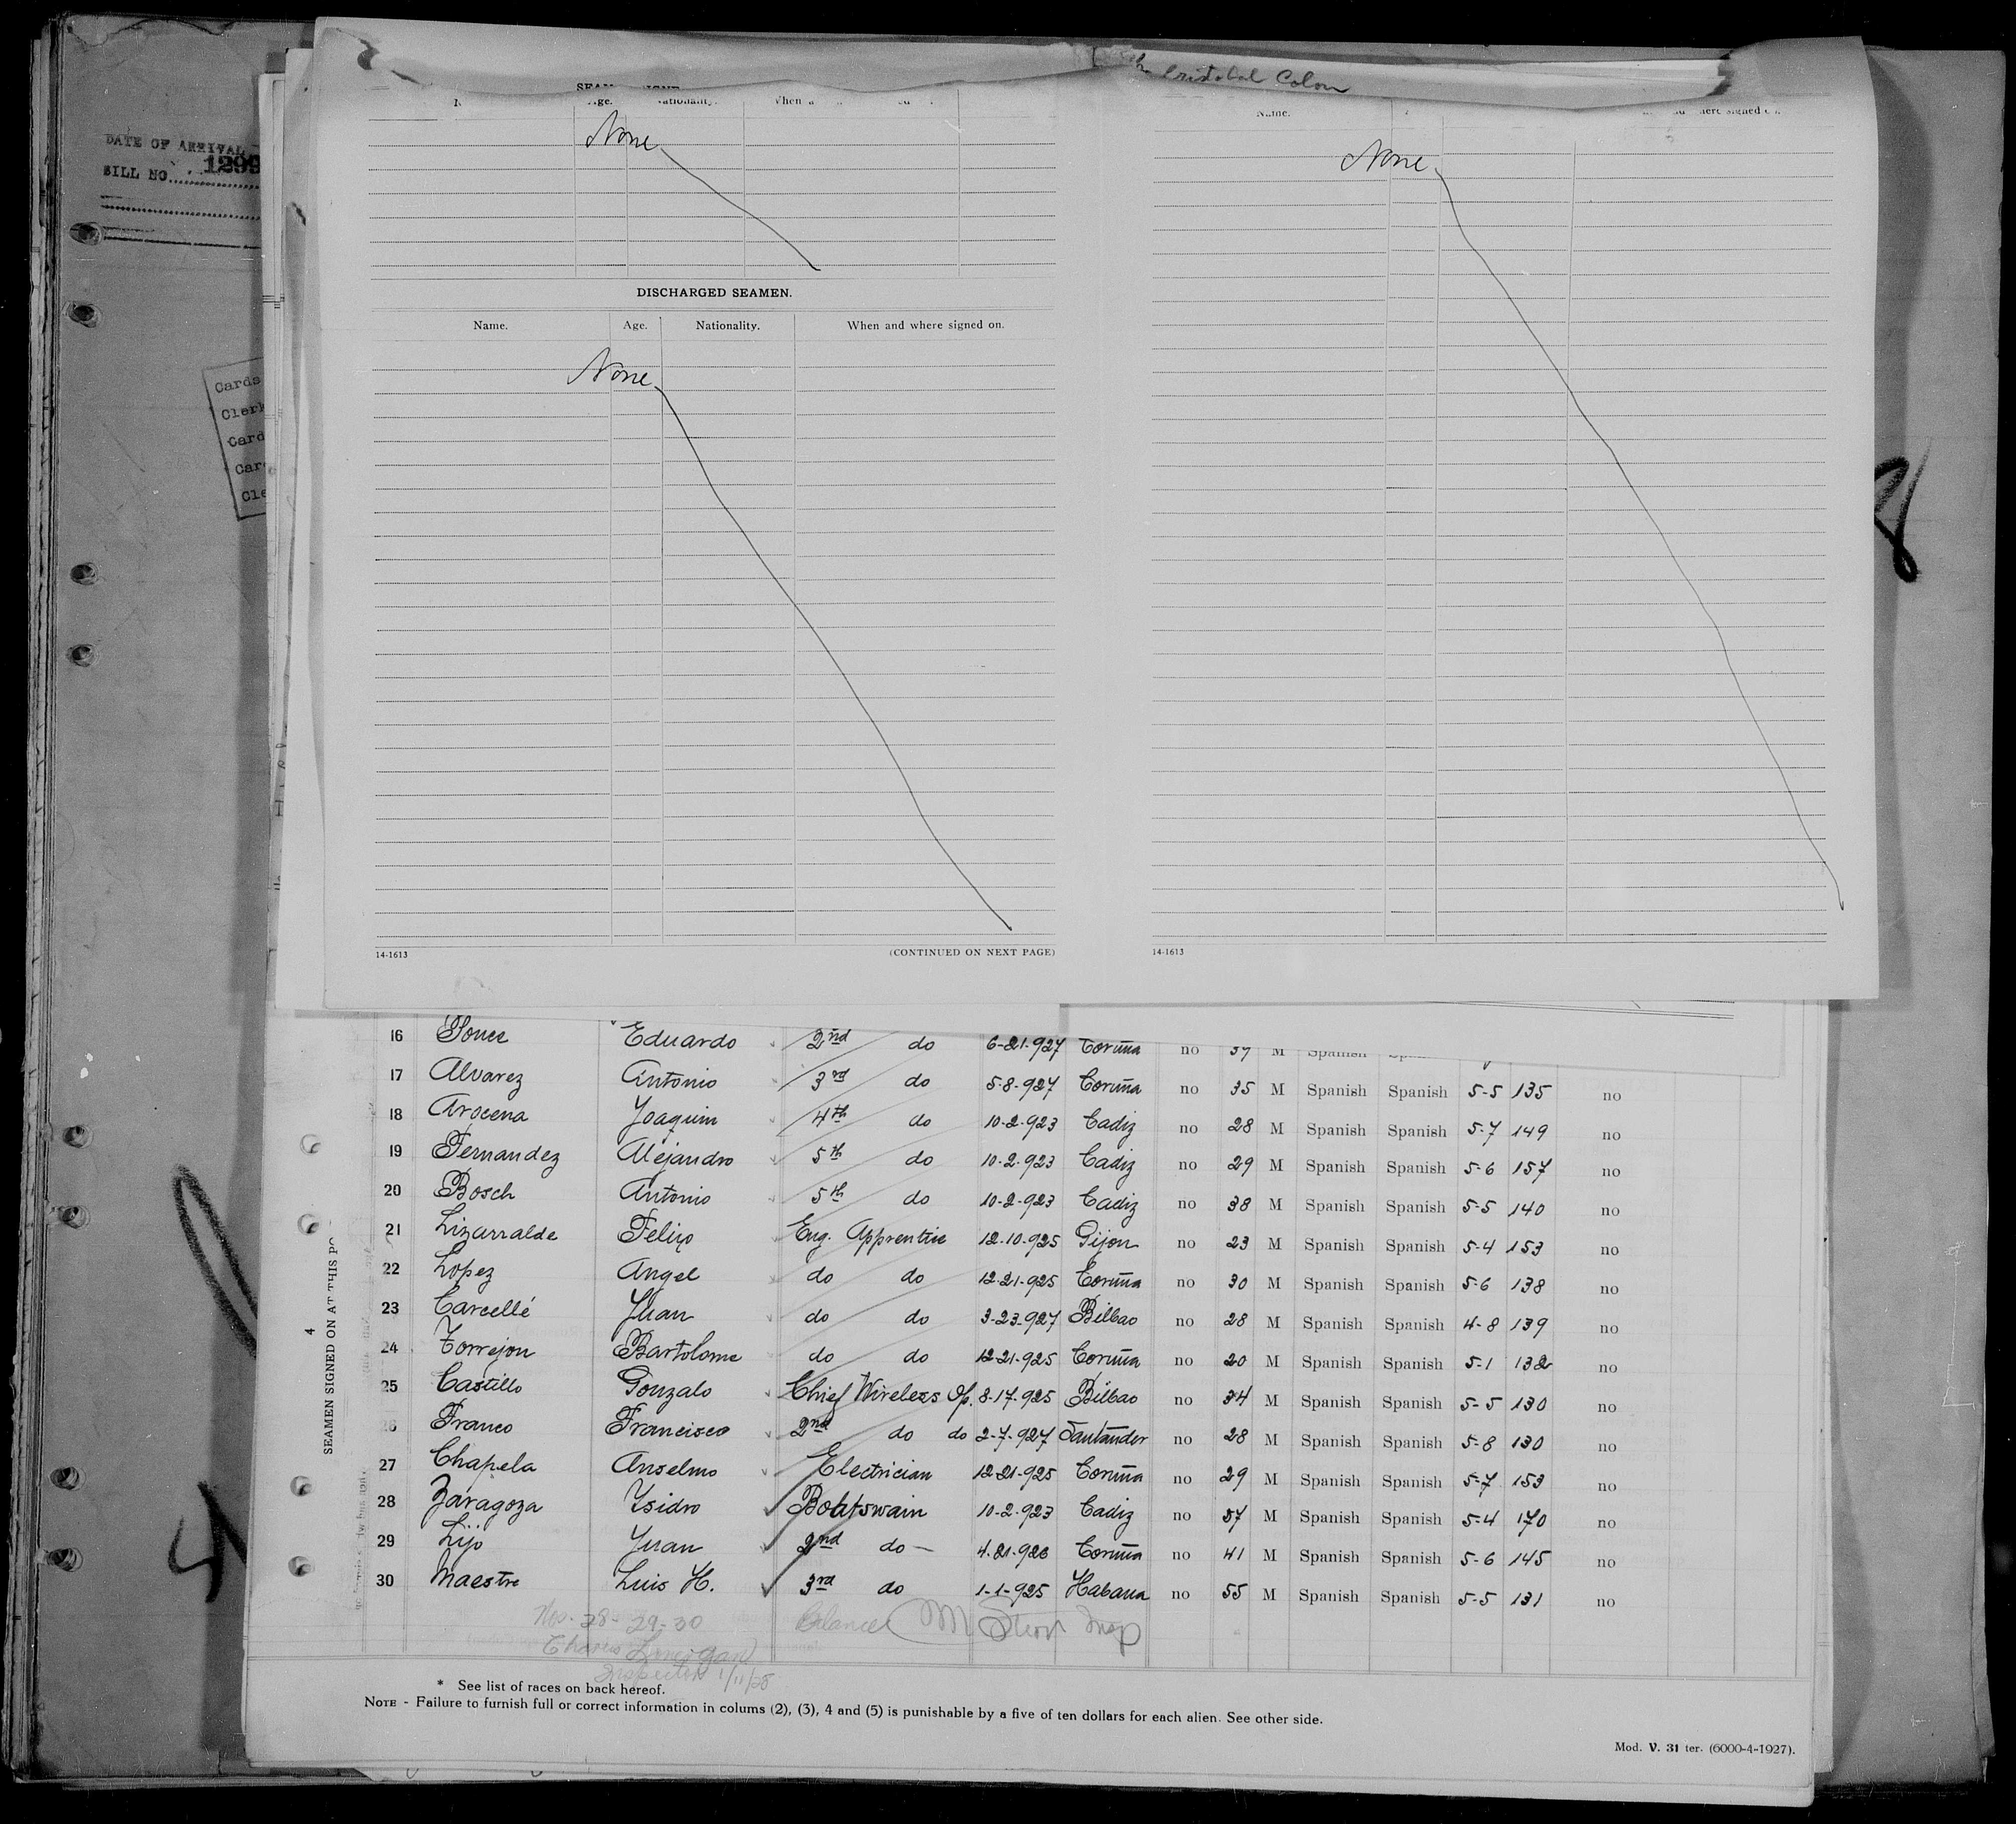 DATE OF ARRIVAL
BILL NO. 1299
Cards
Clerk
Card
Car
Cle
Cristobal Colon
Age.
None
DISCHARGED SEAMEN.
Name. Age. Nationality. When and where signed on.
None
14-1613 (CONTINUED ON NEXT PAGE)
Name.
None
14-1613
8
4
SEAMEN SIGNED ON AT THIS PO
16 Eduardo 2nd do 6-21-927 Coruña no 39 M Spanish
17 Alvarez Antonio 3rd do 5-8-927 Coruña no 35 M Spanish Spanish 5-5 135 no
18 Arocena Joaquin 4th do 10-2-923 Cadiz no 28 M Spanish Spanish 5-7 149 no
19 Fernandez Alejandro 5th do 10-2-923 Cadiz no 29 M Spanish Spanish 5-6 157 no
20 Bosch Antonio 5th do 10-2-923 Cadiz no 38 M Spanish Spanish 5-5 140 no
21 Lizarralde Felix Eng. Apprentice 12-10-925 Gijon no 23 M Spanish Spanish 5-4 153 no
22 Lopez Angel do do 12-21-925 Coruña no 30 M Spanish Spanish 5-6 138 no
23 Carcellé Juan do do 3-23-927 Bilbao no 28 M Spanish Spanish 4-8 139 no
24 Torrejon Bartolome do do 12-21-925 Coruña no 20 M Spanish Spanish 5-1 132 no
25 Castillo Gonzalo Chief Wireless Op. 8-17-925 Bilbao no 34 M Spanish Spanish 5-5 130 no
26 Franco Francisco 2nd do do 2-7-927 Santander no 28 M Spanish Spanish 5-8 130 no
27 Chapela Anselmo Electrician 12-21-925 Coruña no 29 M Spanish Spanish 5-7 153 no
28 Zaragoza Ysidro Boatswain 10-2-923 Cadiz no 57 M Spanish Spanish 5-4 170 no
29 Lijo Juan 2nd do - 4-21-926 Coruña no 41 M Spanish Spanish 5-6 145 no
30 Maestre Luis H. 3rd do 1-1-925 Habana no 55 M Spanish Spanish 5-5 131 no
Nos. 28-29-30 Balance
Inspector 1/11/28
* See list of races on back hereof.
NOTE - Failure to furnish full or correct information in colums (2), (3), 4 and (5) is punishable by a five of ten dollars for each alien. See other side.
Mod. V. 31 ter. (6000-4-1927).